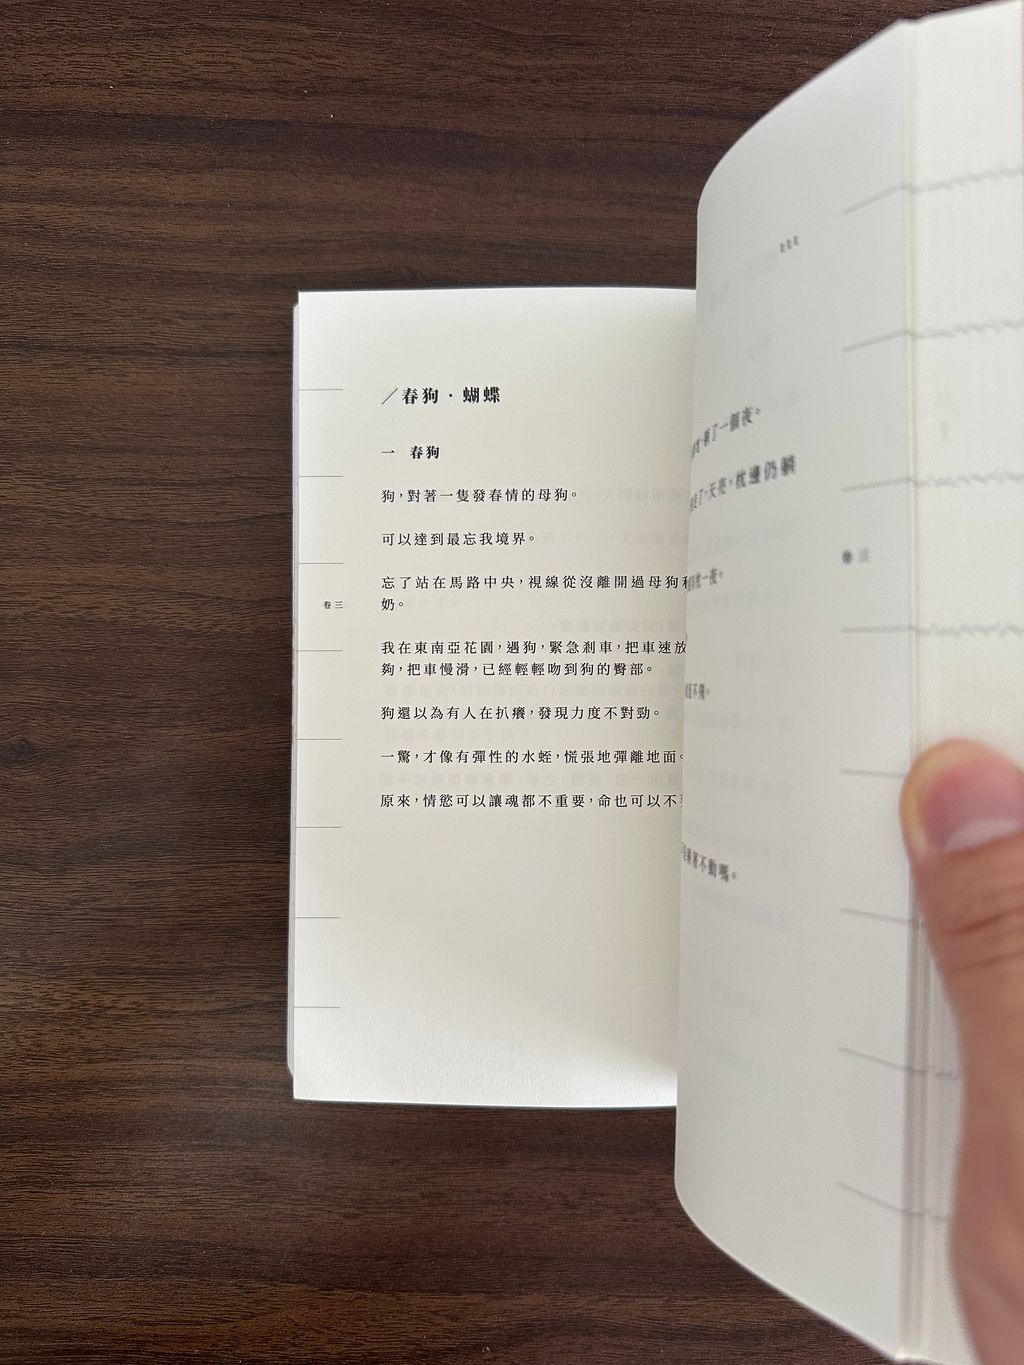 ／春狗．蝴蝶
一　春狗
狗，對著一隻發春情的母狗。
可以達到最忘我境界。
忘了站在馬路中央，視線從沒離開過母狗
奶。
卷三
我在東南亞花園，遇狗，緊急剎車，把車速放
夠，把車慢滑，已經輕輕吻到狗的臀部。
狗還以為有人在扒癢，發現力度不對勁。
一驚，才像有彈性的水蛭，慌張地彈離地面。
原來，情慾可以讓魂都不重要，命也可以不
了一個夜。
了，天亮，枕邊仍躺
枕一夜。
不動嗎。